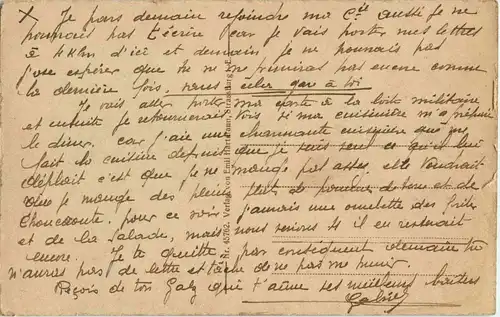 Je pars demain rejoindre ma Cie aussi je ne
pourrais pas t'écrire car je vais porter mes lettres
à 4 klm d'ici et demain je ne pourrais pas
j'ose espérer que tu ne me puniras pas encore comme
la dernière fois, sans cela gare à toi
Je vais aller porter ma carte à la boîte militaire
et ensuite je retournerais voir si ma cuisinière m'a préparé
le diner. car j'ai une charmante cuisinière qui me
fait la cuisine depuis que je suis seul ce qui lui
déplait c'est que je ne mange pas assez, elle voudrait
que je mange des pleins plats de pommes de terre et de
Choucroute. pour ce soir j'aurais une omelette des frites
et de la Salade, mais nous serions 4 il en resterait
encore. Je te quitte, par conséquent demain tu
n'auras pas de lettre et tâche de ne pas me punir.
Reçois de ton Gaby qui t'aime ses meilleurs baisers
Gabriel
Nr. 45762. Verlag von Emil Hartmann, Strassburg i. E.